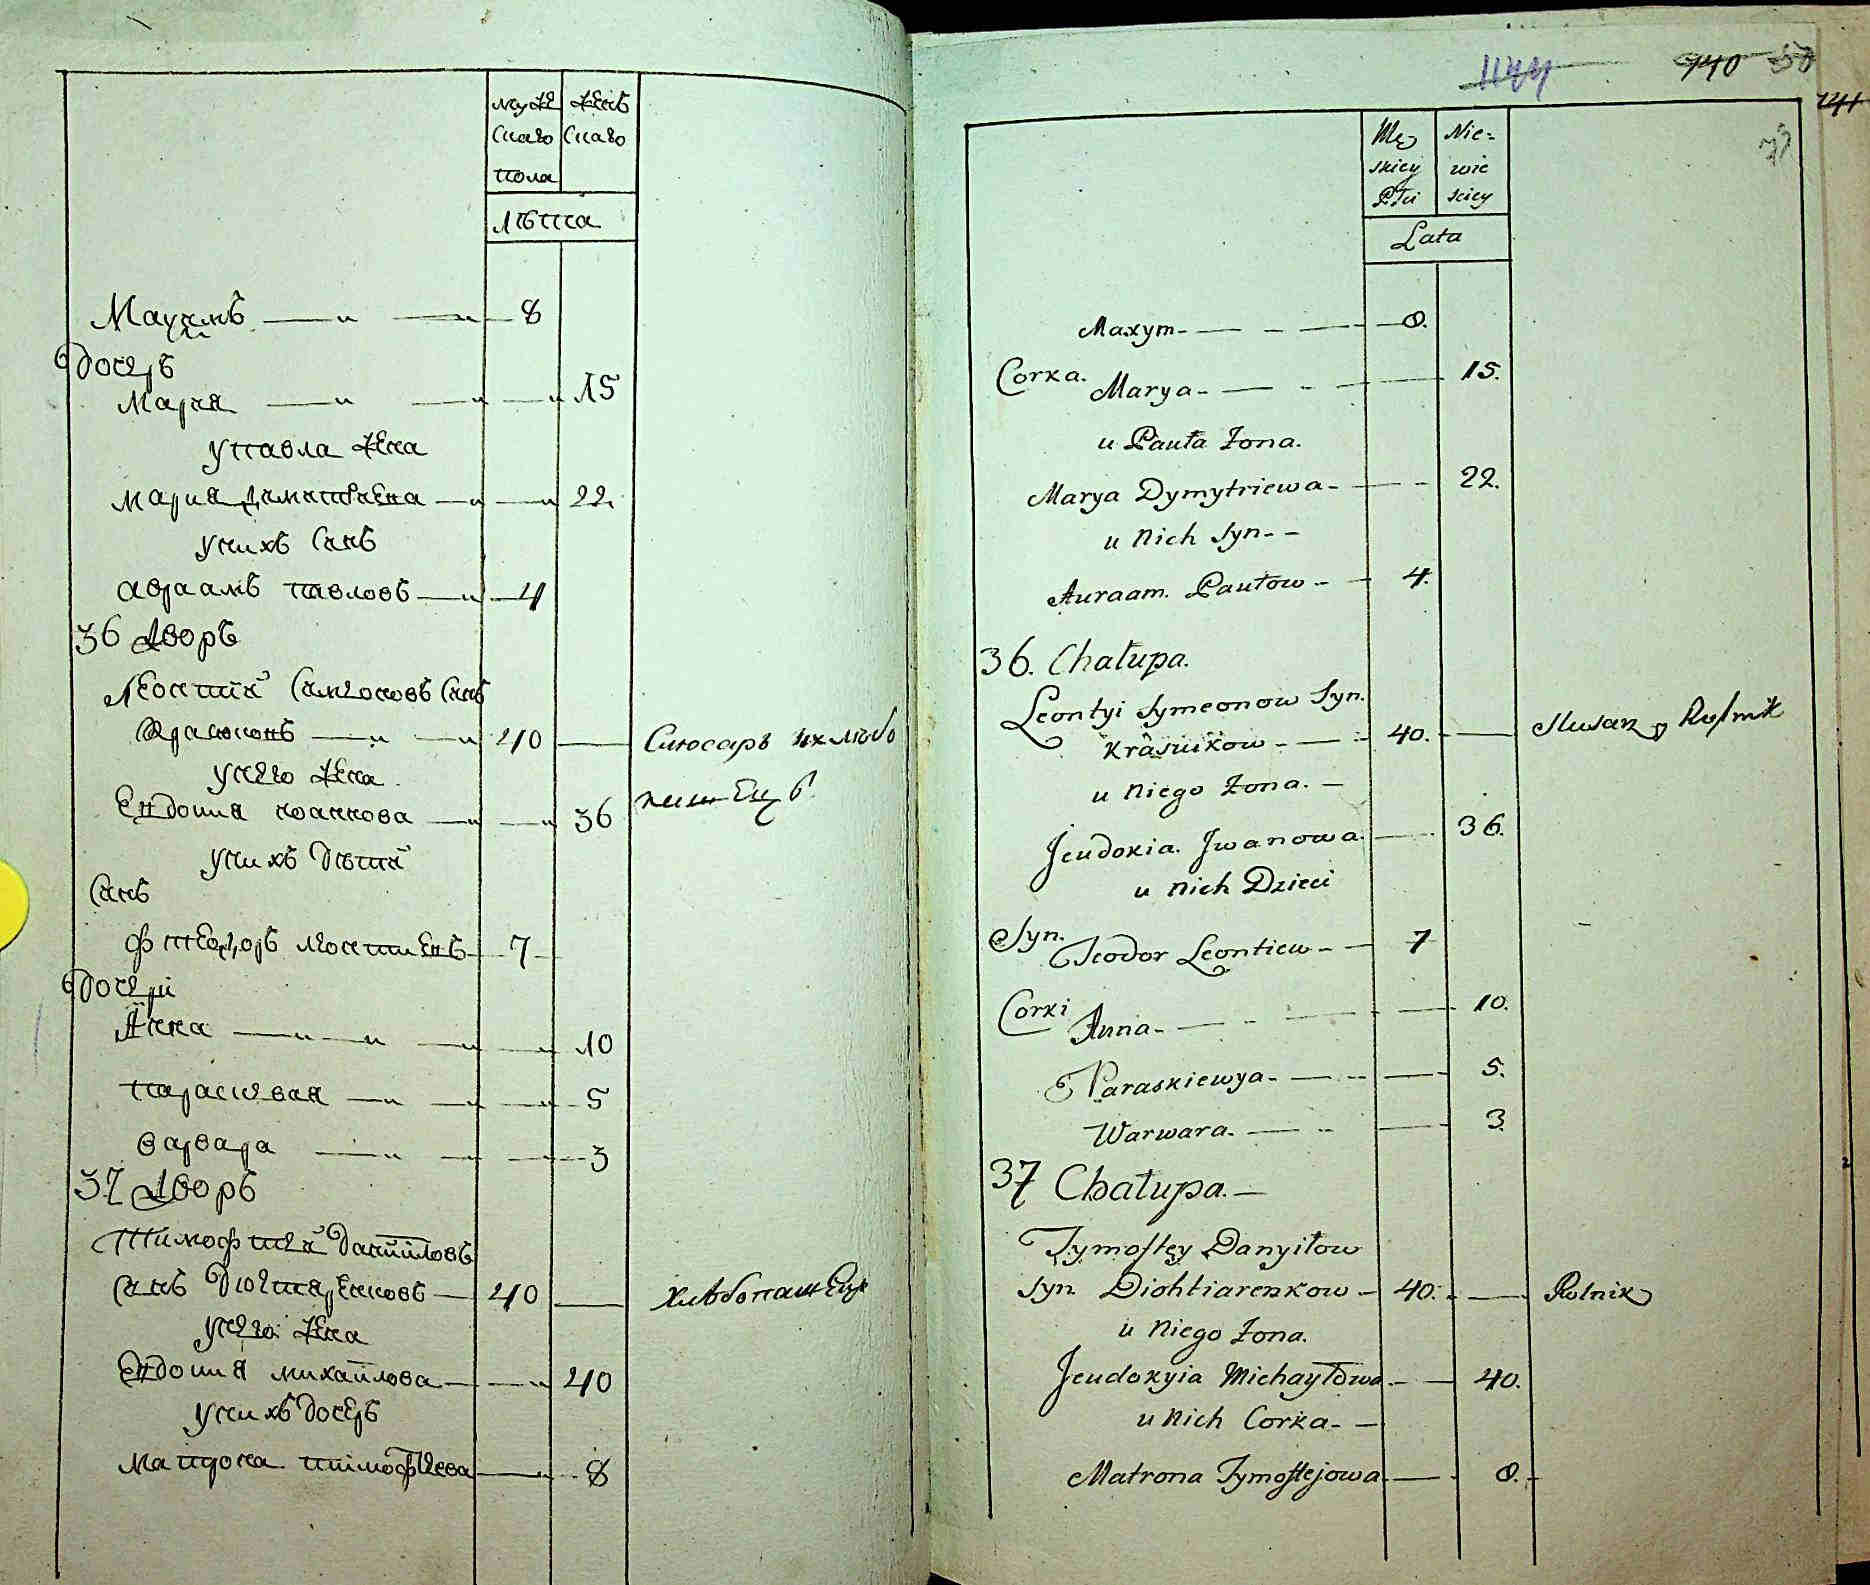 муже женъ
скаго скаго
пола
Лѣта
Маѯимъ 8
дочерь
Мария 15
у павла жена
мария димитриева 22
у нихъ синъ
авраамъ павловъ 4
36 Дворъ
Леонтий Симеоновъ синъ
Красюковъ 40 Слюсарь и хлѣбо
у него жена пашецъ
Евдокия иоаннова 36
у нихъ дѣти
синъ
фтеодоръ леонтиевъ 7
дочери
Анна 10
параскевая 5
варвара 3
37 Дворъ
Тимофтей Данииловъ
синъ Діогтяренковъ 40 хлѣбопашецъ
у него жена
Евдокия михайлова 40
у нихъ дочерь
матрона тимофтеева 8
1144 140 50
141
73
Mę Nie=
skiey wie
Płci sciey
Lata
Maxym 8.
Corka. Marya 15.
u Pauła Zona.
Marya Dymytriewa 22.
u Nich Syn
Auraam. Pautow 4.
36. Chałupa.
Leontyi Symeonow Syn.
Krasiukow 40. Slusarz y Rolnik
u Niego Zona.
Jeudokia. Jwanowa 36.
u Nich Dzieci
Syn.
Teodor Leontiew 7
Corki
Anna 10.
Paraskiewya 5.
Warwara. 3.
37 Chałupa.
Tymoftey Danyiłow
Syn Diohtiarenkow 40. Rolnik
u Niego Zona.
Jeudokyia Michayłowa 40.
u Nich Corka
Matrona Tymoftejowa 8.